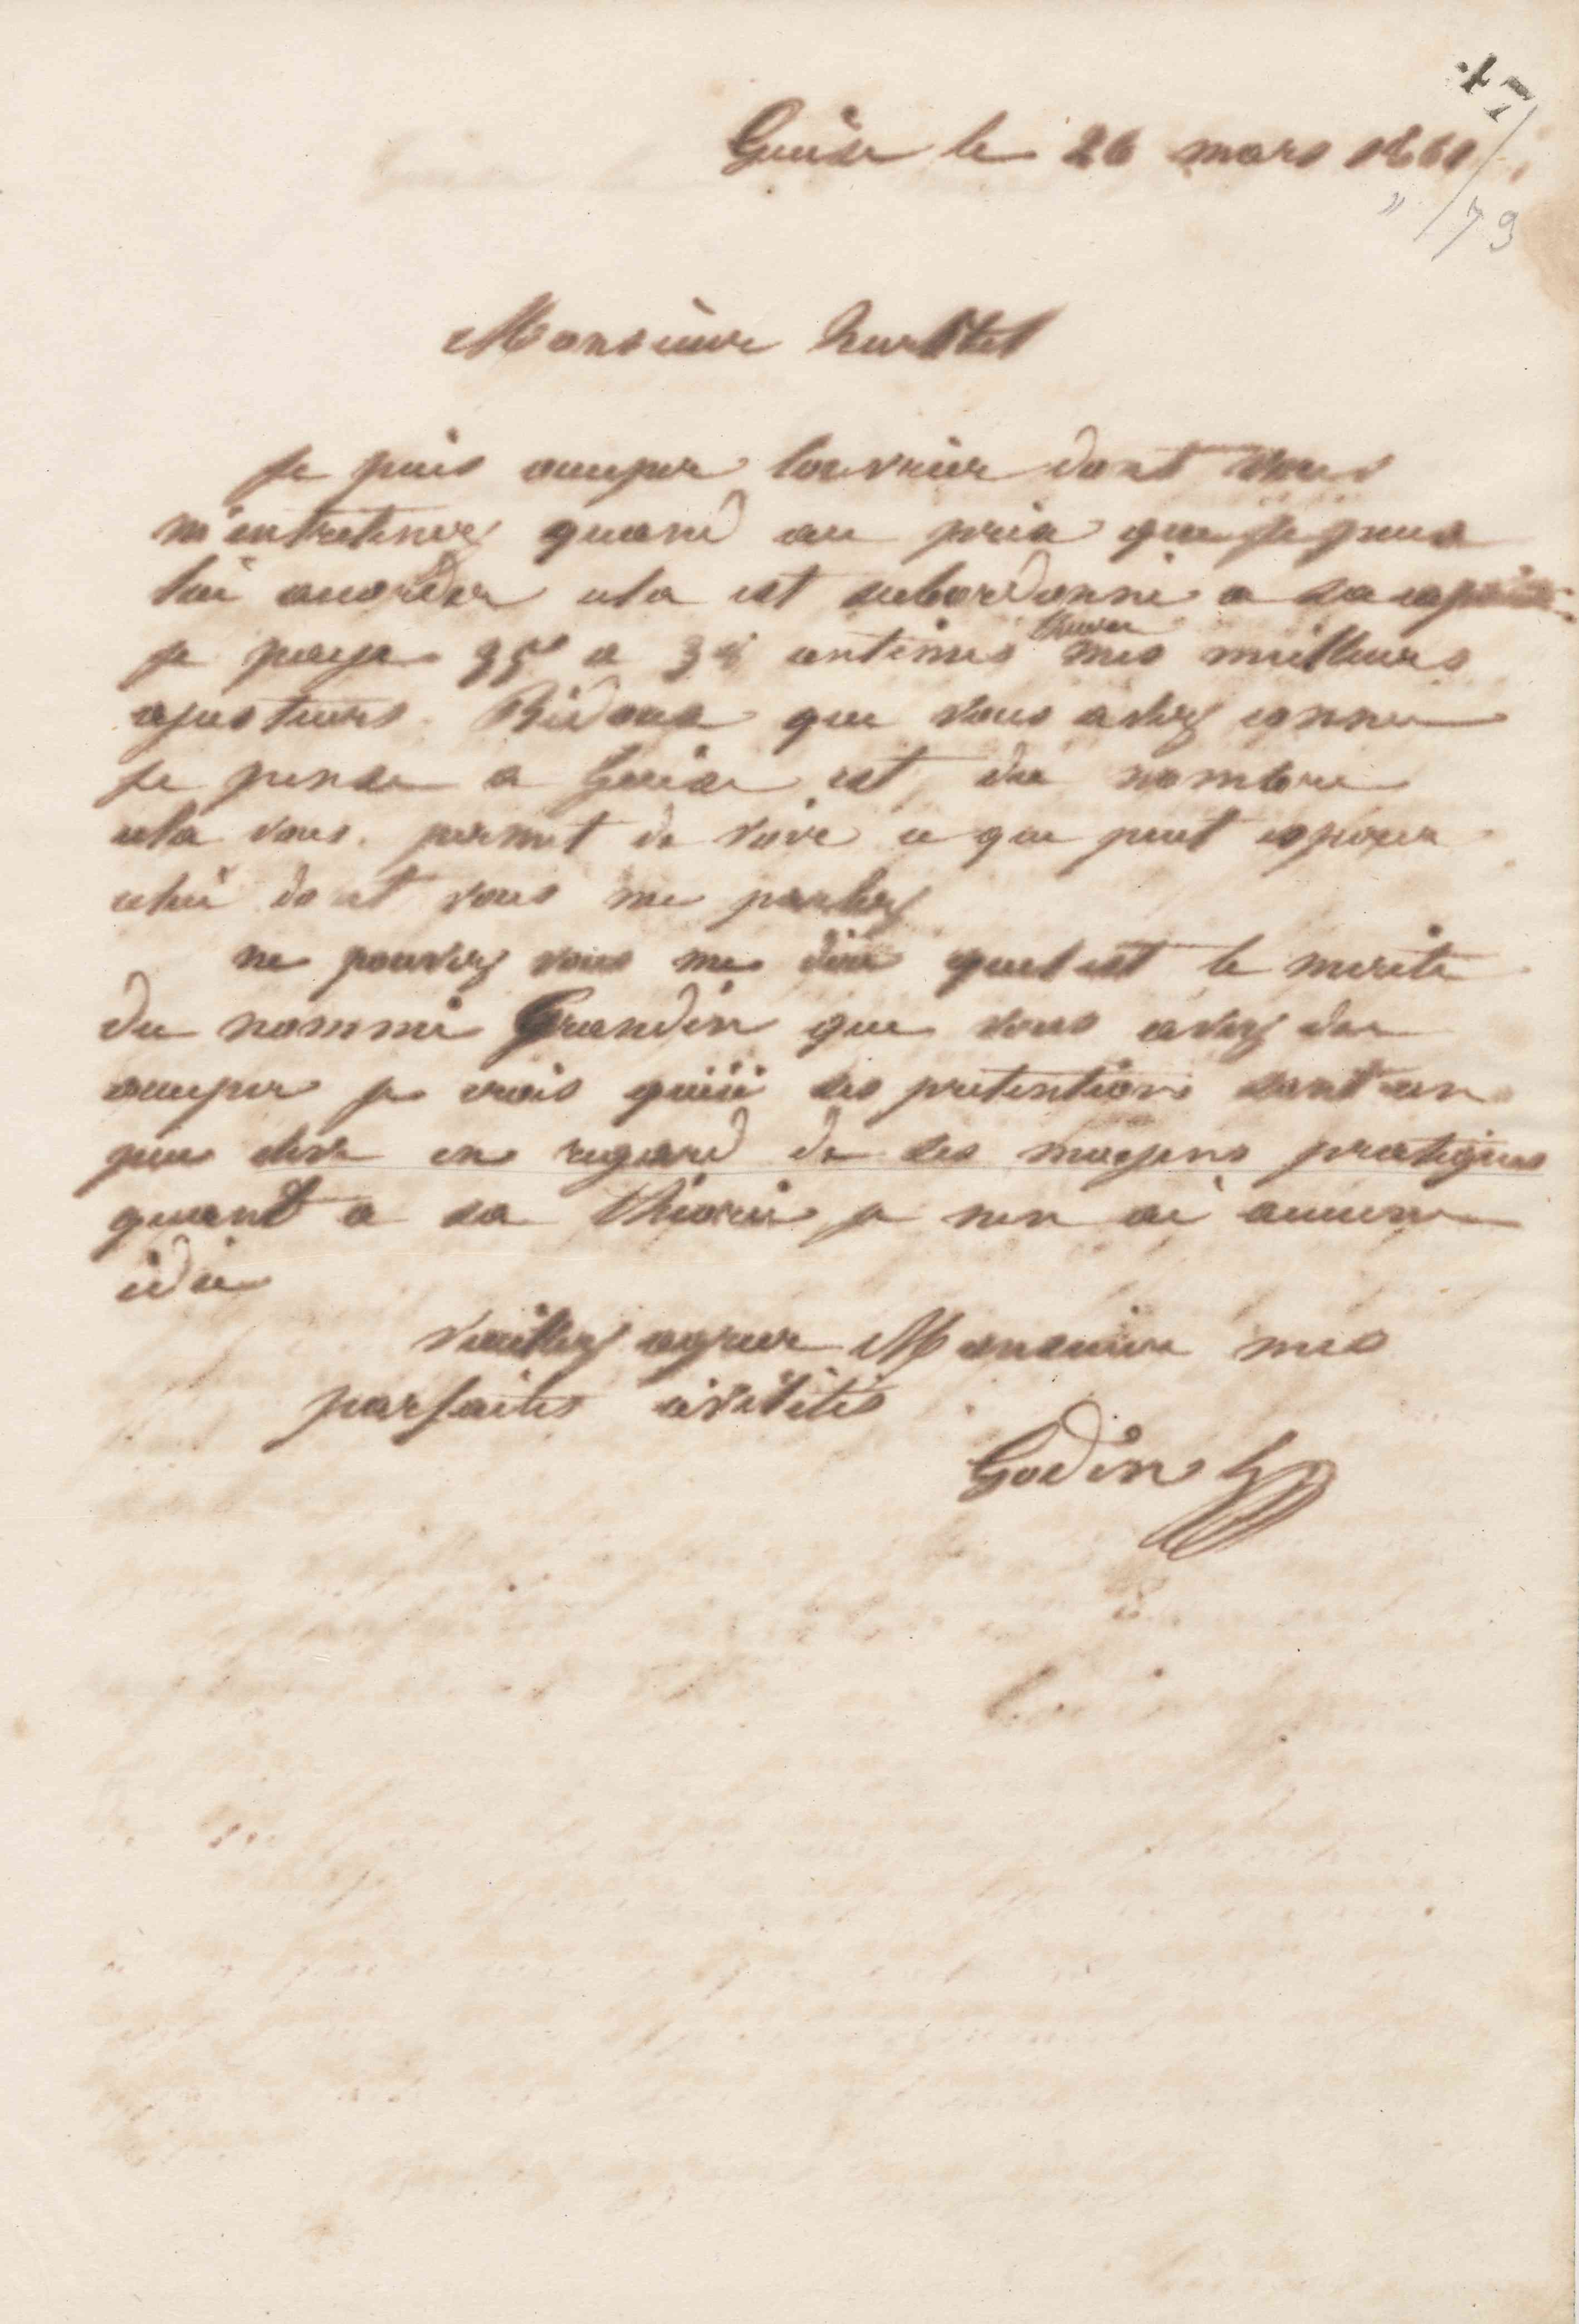 47
Guise le 26 mars 1861
79
Monsieur
je puis occuper louvrier dont vous
m'entretenez quand au prix que je peux
lui accorder cela est subordonné a sa
je paye 35 a 38 centimes l'heure mes meilleurs
ajusteurs. Bidoux que vous avez connu
je pense a Guise est du nombre
cela vous permet de voir ce que peut esperer
celui dont vous me parlez
ne pouvez vous me dire quel est le merite
du nommé Grandin que vous avez du
occuper je crois que ses pretentions sont un
peu elevé en regard de ses moyens pratiques
quant a sa théorie je nen ai aucune
idée
Veuillez agreer Monsieur mes
parfaites civilités
Godin